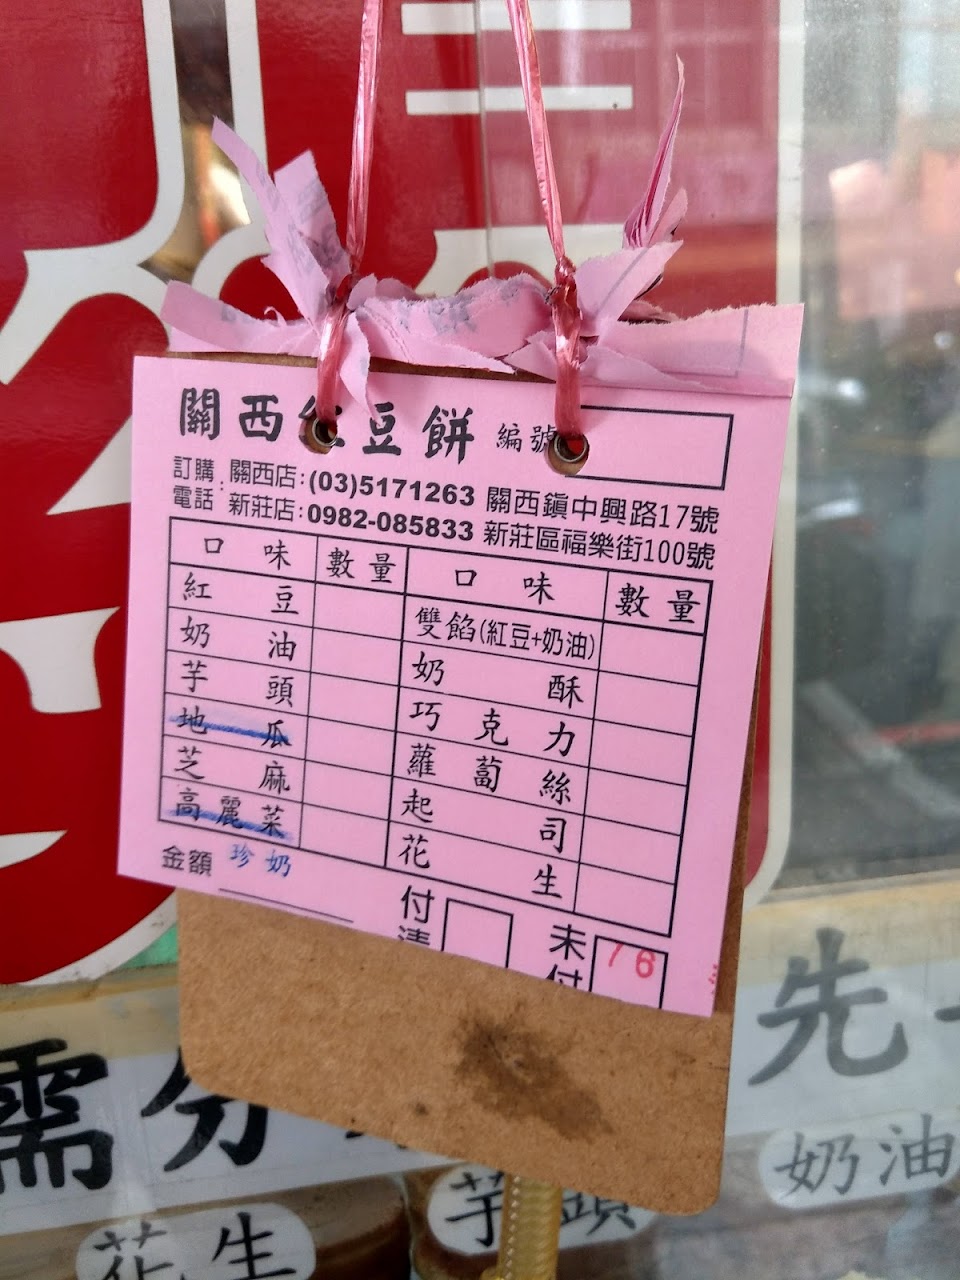 關西紅豆餅 編號
訂購電話: 關西店:(03)5171263 關西鎮中興路17號
新莊店:0982-085833 新莊區福樂街100號
口味 數量 口味 數量
紅豆 雙餡(紅豆+奶油)
奶油 奶酥
芋頭 巧克力
地瓜 蘿蔔絲
芝麻 起司
高麗菜 花生
金額 珍奶
付清 未付 76
先
需分
奶油
芋頭
花生